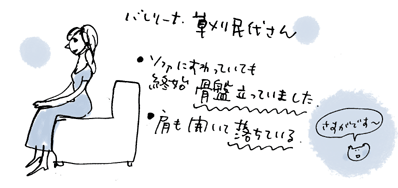 バレリーナ 草刈民代さん
• ソファにすわっていても
終始 骨盤 立っていました。
• 肩も 開いて 落ちている。
さすがです〜